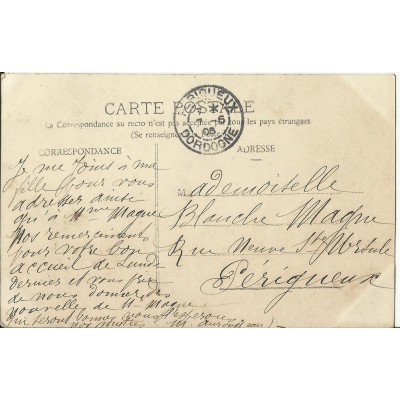 CARTE POSTALE
La Correspondance au recto n'est pas acceptée par tous les pays étrangers
(Se renseigner
PERIGUEUX
DORDOGNE
CORRESPONDANCE
ADRESSE
Je me joins à ma
fille pour vous
adresser ainsi
qu'à Mme Magne
nos remerciements
pour votre bon
accueil de Lundi
dernier et vous prie
de nous donner des
nouvelles de M. Magne
qui seront bonnes nous l'espérons
Mademoiselle
Blanche Magne
Rue Neuve Ste Ursule
Périgueux